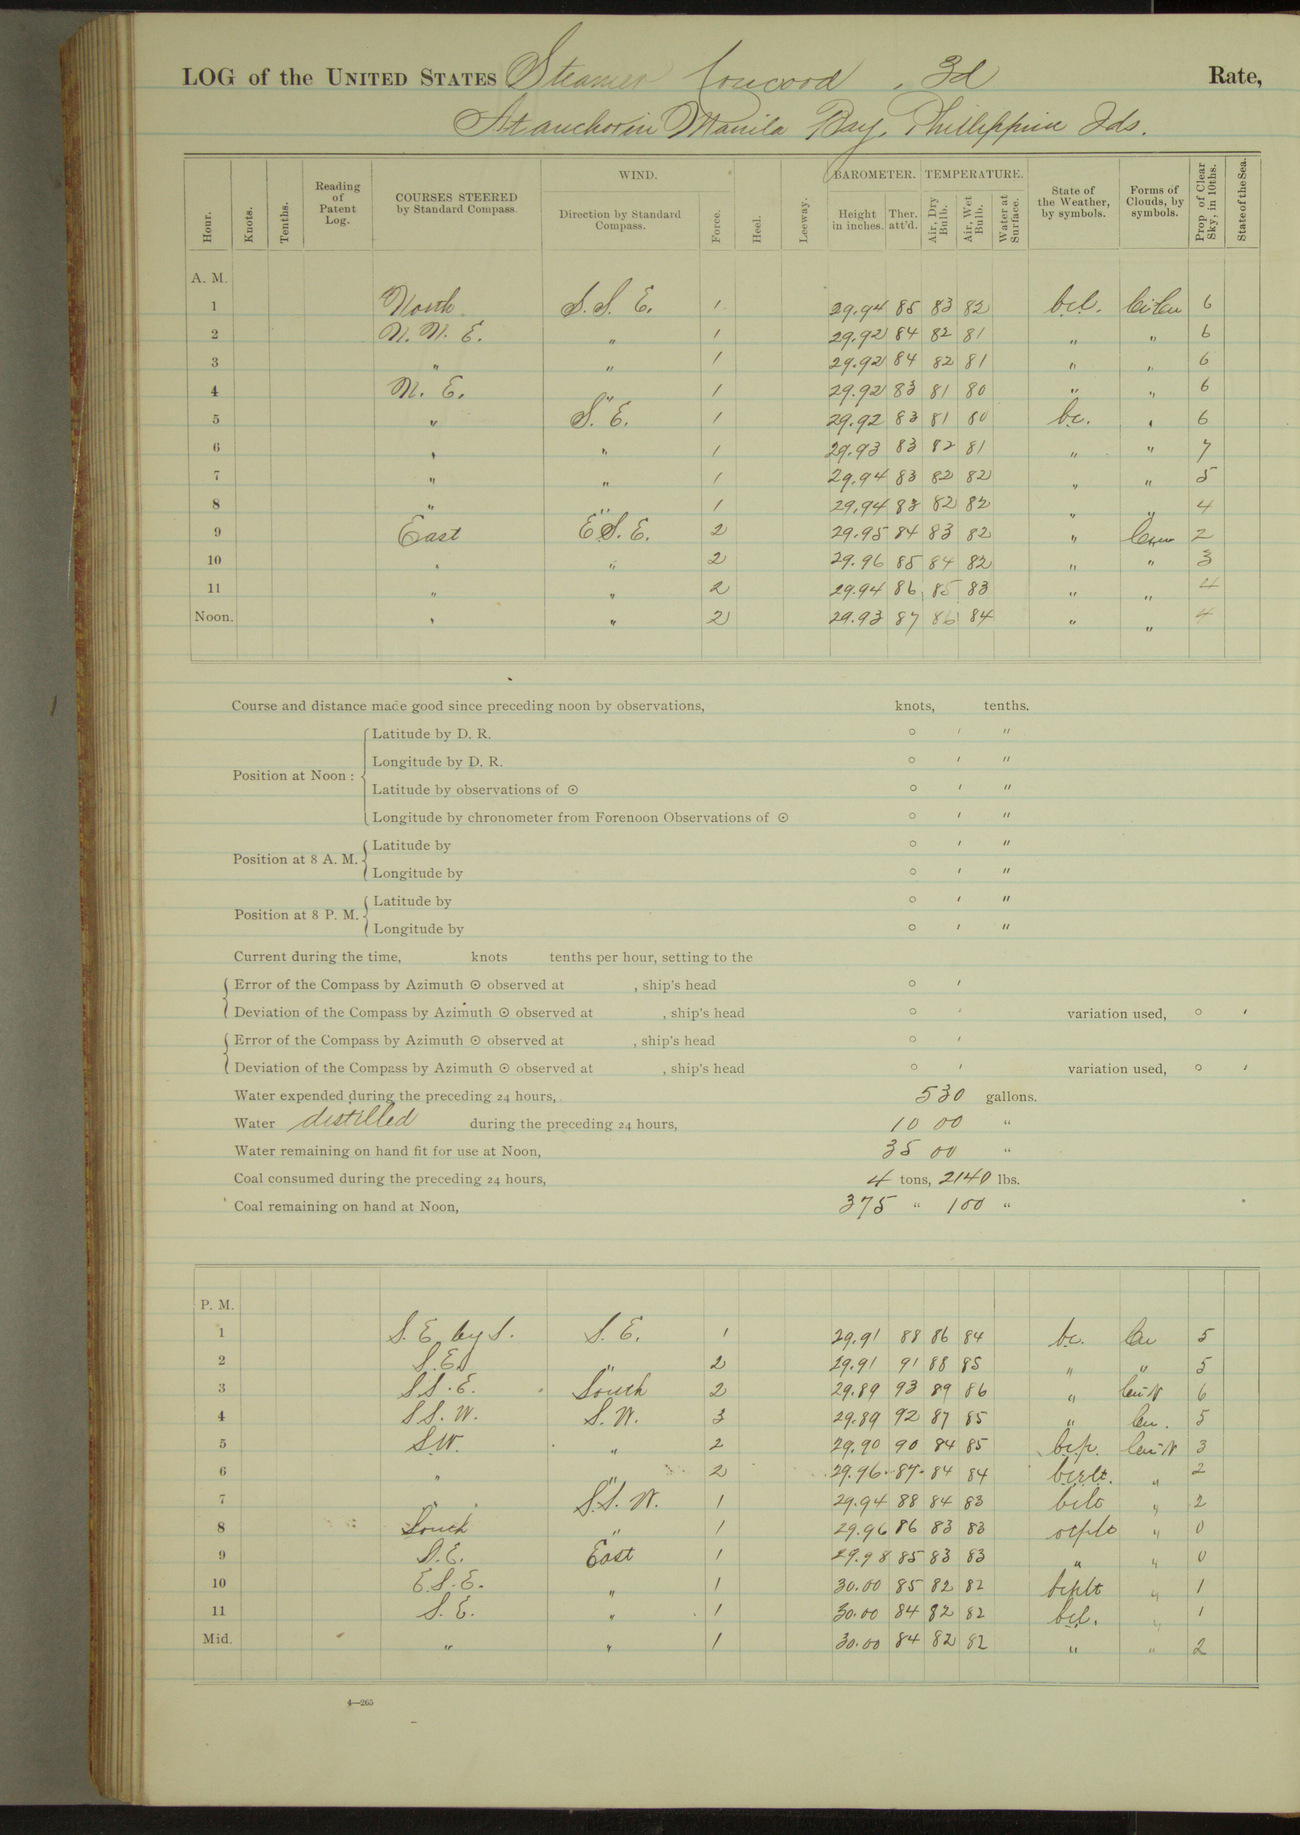 LOG of the UNITED STATES Steamer Concord, 3d Rate,
At anchor in Manila Bay, Phillippine Ids.
Hour. Knots. Tenths. Reading of Patent Log. COURSES STEERED by Standard Compass. WIND. Direction by Standard Compass. Force. Heel. Leeway. BAROMETER. Height in inches. Ther. att'd. TEMPERATURE. Air, Dry Bulb. Air, Wet Bulb. Water at Surface. State of the Weather, by symbols. Forms of Clouds, by symbols. Prop. of Clear Sky, in 10ths. State of the Sea.
A. M.
1 North S. S. E. 1 29.94 85 83 82 bcl. Ci-Cu 6
2 N. N. E. " 1 29.92 84 82 81 " " 6
3 " " 1 29.92 84 82 81 " " 6
4 N. E. " 1 29.92 83 81 80 " " 6
5 " S. E. 1 29.92 83 81 80 bc. " 6
6 " " 1 29.93 83 82 81 " " 7
7 " " 1 29.94 83 82 82 " " 5
8 " " 1 29.94 83 82 82 " " 4
9 East E S. E. 2 29.95 84 83 82 " Cum 2
10 " " 2 29.96 85 84 82 " " 3
11 " " 2 29.94 86 85 83 " " 4
Noon. " " 2 29.93 87 86 84 " " 4
Course and distance made good since preceding noon by observations, knots, tenths.
Position at Noon :
Latitude by D. R. ° ′ ″
Longitude by D. R. ° ′ ″
Latitude by observations of ☉ ° ′ ″
Longitude by chronometer from Forenoon Observations of ☉ ° ′ ″
Position at 8 A. M.
Latitude by ° ′ ″
Longitude by ° ′ ″
Position at 8 P. M.
Latitude by ° ′ ″
Longitude by ° ′ ″
Current during the time, knots tenths per hour, setting to the
Error of the Compass by Azimuth ☉ observed at , ship's head ° ′
Deviation of the Compass by Azimuth ☉ observed at , ship's head ° ′ variation used, ° ′
Error of the Compass by Azimuth ☉ observed at , ship's head ° ′
Deviation of the Compass by Azimuth ☉ observed at , ship's head ° ′ variation used, ° ′
Water expended during the preceding 24 hours, 530 gallons.
Water distilled during the preceding 24 hours, 1000 "
Water remaining on hand fit for use at Noon, 3500 "
Coal consumed during the preceding 24 hours, 4 tons, 2140 lbs.
Coal remaining on hand at Noon, 375 " 100 "
P. M.
1 S. E. by S. S. E. 1 29.91 88 86 84 bc. Cu 5
2 S.E. " 2 29.91 91 88 85 " " 5
3 S S. E. South 2 29.89 93 89 86 " Cu-N 6
4 S S. W. S. W. 3 29.89 92 87 85 " Cu. 5
5 S.W. " 2 29.90 90 84 85 bcp. Cu-N 3
6 " " 2 29.96 87 84 84 " 2
7 " S.S. W. 1 29.94 88 84 83 " 2
8 South " 1 29.96 86 83 83 " 0
9 S.E. East 1 29.98 85 83 83 " " 0
10 E.S.E. " 1 30.00 85 82 82 " 1
11 S. E. " 1 30.00 84 82 82 bcl. " 1
Mid. " " 1 30.00 84 82 82 " " 2
4—265